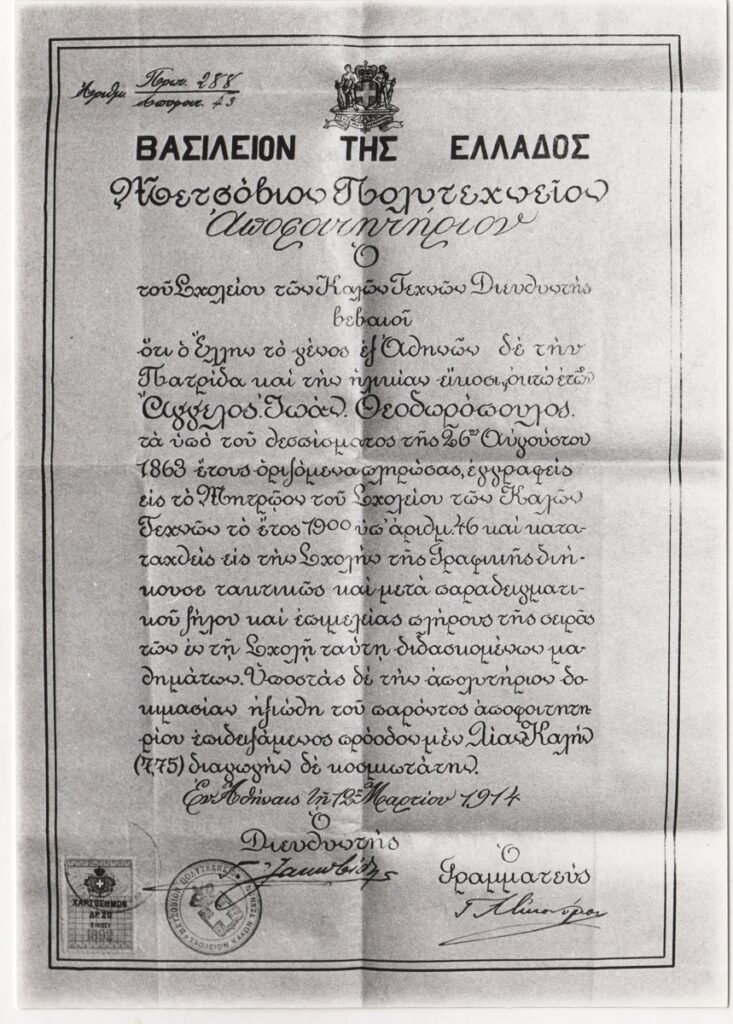 Ἀριθμ. Πρωτ. 288
Διπρωτ. 43
ΒΑΣΙΛΕΙΟΝ ΤΗΣ ΕΛΛΑΔΟΣ
Μετσόβιον Πολυτεχνεῖον
Ἀποφοιτητήριον
Ὁ
τοῦ Σχολείου τῶν Καλῶν Τεχνῶν Διευθυντής
βεβαιοῖ
ὅτι ὁ Ἕλλην τὸ γένος ἐξ Ἀθηνῶν δὲ τὴν
Πατρίδα καὶ τὴν ἡλικίαν εἴκοσι ὀκτὼ ἐτῶν
Ἄγγελος Ἰωάν. Θεοδωρόπουλος.
τὰ ὑπὸ τοῦ θεσπίσματος τῆς 26ης Αὐγούστου
1863 ἔτους ὁριζόμενα πληρώσας, ἐγγραφεὶς
εἰς τὸ Μητρῷον τοῦ Σχολείου τῶν Καλῶν
Τεχνῶν τὸ ἔτος 1900 ὑπ' ἀριθμ. 46 καὶ κατα-
ταχθεὶς εἰς τὴν Σχολὴν τῆς Γραφικῆς διή-
κουσε τακτικῶς καὶ μετὰ παραδειγματι-
κοῦ ζήλου καὶ ἐπιμελείας πλήρους τῆς σειρᾶς
τῶν ἐν τῇ Σχολῇ ταύτῃ διδασκομένων μα-
θημάτων. Ὑποστὰς δὲ τὴν ἀπολυτήριον δο-
κιμασίαν ἠξιώθη τοῦ παρόντος ἀποφοιτητη-
ρίου ἐπιδειξάμενος πρόοδον μὲν Λίαν Καλὴν
(7,75) διαγωγὴν δὲ κοσμιωτάτην.
Ἐν Ἀθήναις τῇ 12ῃ Μαρτίου 1914
Ὁ
Διευθυντής
Γ. Ἰακωβίδης
Ὁ
Γραμματεύς
ΧΑΡΤΟΣΗΜΟΝ
ΔΡ. 20
ΕΙΚΟΣΙ
1892
ΜΕΤΣΟΒΙΟΝ ΠΟΛΥΤΕΧΝΕΙΟΝ
ΣΧΟΛΕΙΟΝ ΚΑΛΩΝ ΤΕΧΝΩΝ